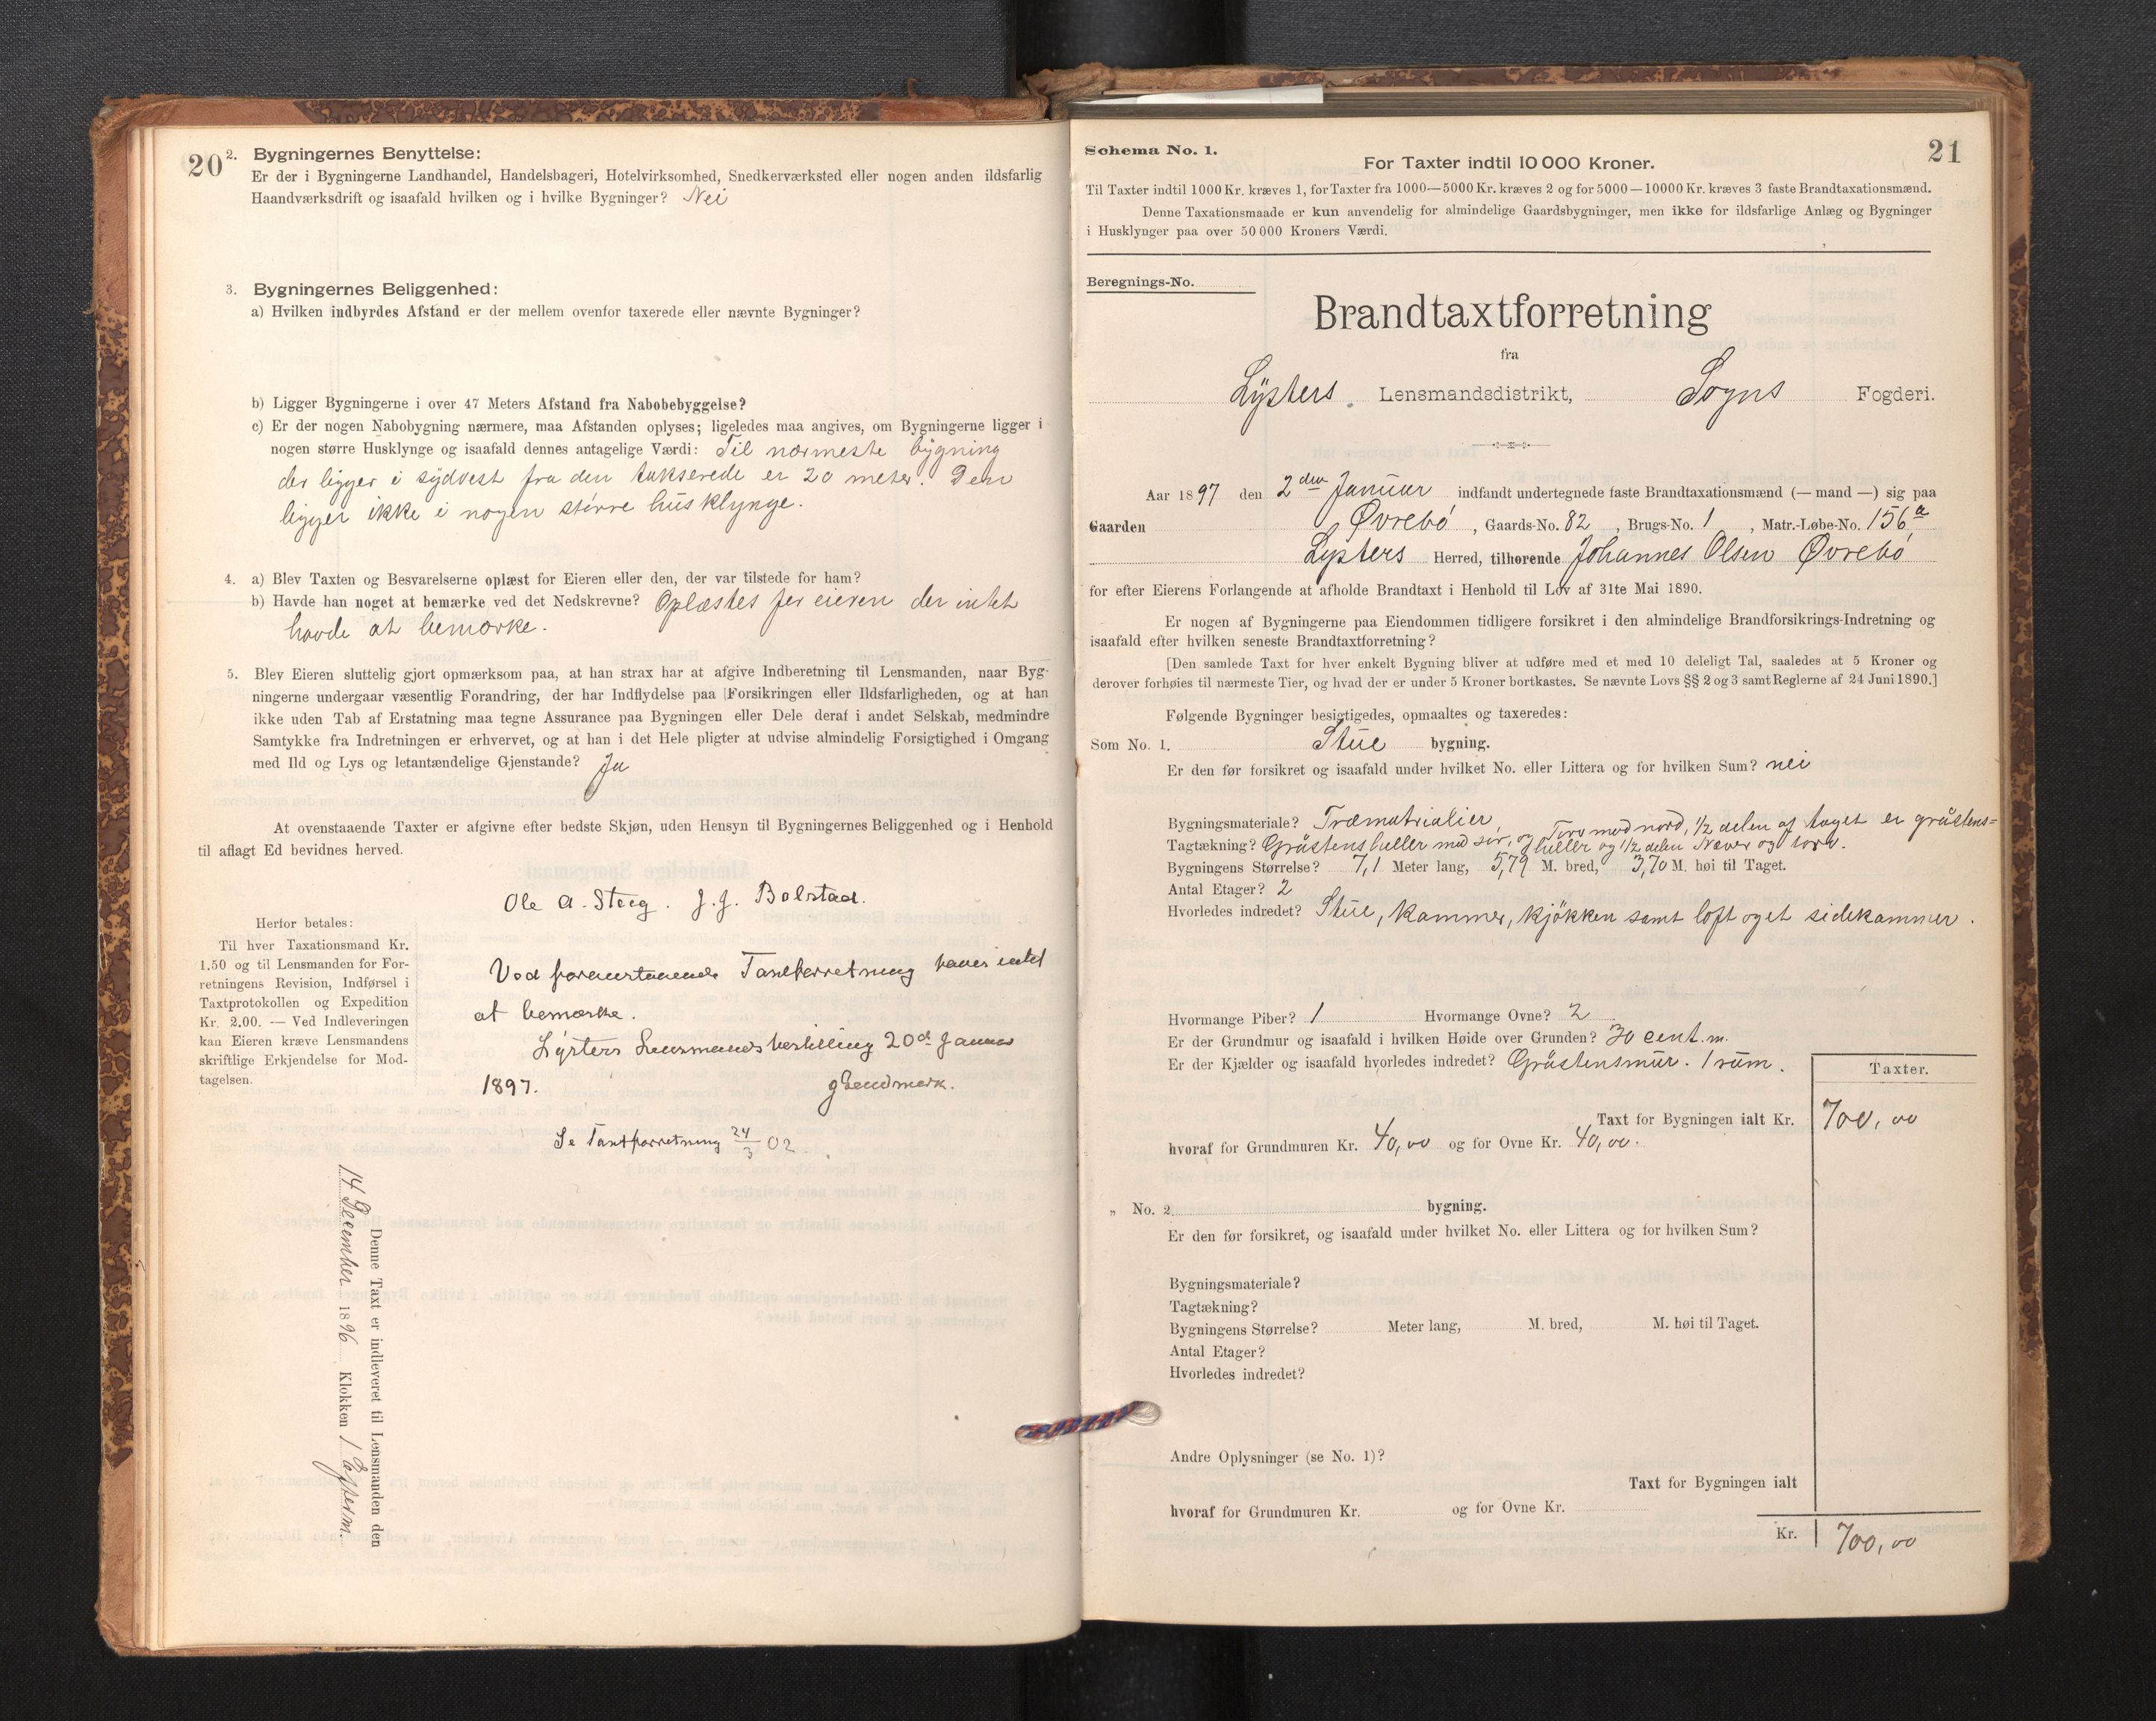 20
2. Bygningernes Benyttelse:
Er der i Bygningerne Landhandel, Handelsbageri, Hotelvirksomhed, Snedkerværksted eller nogen anden ildsfarlig
Haandværksdrift og isaafald hvilken og i hvilke Bygninger? Nei
3. Bygningernes Beliggenhed:
a) Hvilken indbyrdes Afstand er der mellem ovenfor taxerede eller nævnte Bygninger?
b) Ligger Bygningerne i over 47 Meters Afstand fra Nabobebyggelse?
c) Er der nogen Nabobygning nærmere, maa Afstanden oplyses; ligeledes maa angives, om Bygningerne ligger i
nogen større Husklynge og isaafald dennes antagelige Værdi: Til nærmeste bygning
der ligger i sydvest fra den takserede er 20 meter. Den
ligger ikke i nogen større husklynge.
4. a) Blev Taxten og Besvarelserne oplæst for Eieren eller den, der var tilstede for ham?
b) Havde han noget at bemærke ved det Nedskrevne? Oplæstes for eieren der intet
havde at bemærke.
5. Blev Eieren sluttelig gjort opmærksom paa, at han strax har at afgive Indberetning til Lensmanden, naar Byg-
ningerne undergaar væsentlig Forandring, der har Indflydelse paa Forsikringen eller Ildsfarligheden, og at han
ikke uden Tab af Erstatning maa tegne Assurance paa Bygningen eller Dele deraf i andet Selskab, medmindre
Samtykke fra Indretningen er erhvervet, og at han i det Hele pligter at udvise almindelig Forsigtighed i Omgang
med Ild og Lys og letantændelige Gjenstande? Ja
At ovenstaaende Taxter er afgivne efter bedste Skjøn, uden Hensyn til Bygningernes Beliggenhed og i Henhold
til aflagt Ed bevidnes herved.
Ole A. Steeg. J. J. Bolstad.
Herfor betales:
Til hver Taxationsmand Kr.
1.50 og til Lensmanden for For-
retningens Revision, Indførsel i
Taxtprotokollen og Expedition
Kr. 2.00. — Ved Indleveringen
kan Eieren kræve Lensmandens
skriftlige Erkjendelse for Mod-
tagelsen.
Ved foranstaaende Taxtforretning haves intet
at bemærke.
Lysters Lensmandsbestilling 20de Januar
1897.
Se Taxtforretning 24/3 02
Denne Taxt er indleveret til Lensmanden den
14 December 1896 Klokken 1 Efterm.
21
Schema No. 1.
For Taxter indtil 10 000 Kroner.
Til Taxter indtil 1000 Kr. kræves 1, for Taxter fra 1000—5000 Kr. kræves 2 og for 5000—10000 Kr. kræves 3 faste Brandtaxationsmænd.
Denne Taxationsmaade er kun anvendelig for almindelige Gaardsbygninger, men ikke for ildsfarlige Anlæg og Bygninger
i Husklynger paa over 50 000 Kroners Værdi.
Beregnings-No.
Brandtaxtforretning
fra
Lysters Lensmandsdistrikt, Sogns Fogderi.
Aar 1897 den 2den Januar indfandt undertegnede faste Brandtaxationsmænd (— mand —) sig paa
Gaarden Øvrebø, Gaards-No. 82, Brugs-No. 1, Matr.-Løbe-No. 156a
Lysters Herred, tilhørende Johannes Olsen Øvrebø
for efter Eierens Forlangende at afholde Brandtaxt i Henhold til Lov af 31te Mai 1890.
Er nogen af Bygningerne paa Eiendommen tidligere forsikret i den almindelige Brandforsikrings-Indretning og
isaafald efter hvilken seneste Brandtaxtforretning?
[Den samlede Taxt for hver enkelt Bygning bliver at udføre med et med 10 deleligt Tal, saaledes at 5 Kroner og
derover forhøies til nærmeste Tier, og hvad der er under 5 Kroner bortkastes. Se nævnte Lovs §§ 2 og 3 samt Reglerne af 24 Juni 1890.]
Følgende Bygninger besigtigedes, opmaaltes og taxeredes:
Som No. 1. Stue bygning.
Er den før forsikret og isaafald under hvilket No. eller Littera og for hvilken Sum? nei
Bygningsmateriale? Træmatrialier,
Tagtækning? Gråstensheller mod sør, og Torv mod nord, 1/2 delen af taget er gråstens=
heller og 1/2 delen Næver og torv.
Bygningens Størrelse? 7,1 Meter lang, 5,79 M. bred, 3,70 M. høi til Taget.
Antal Etager? 2
Hvorledes indredet? Stue, kammer, kjøkken samt loft og et sidekammer.
Hvormange Piber? 1 Hvormange Ovne? 2
Er der Grundmur og isaafald i hvilken Høide over Grunden? 30 cent.m.
Er der Kjælder og isaafald hvorledes indredet? Gråstensmur. 1 rum.
Taxter.
Taxt for Bygningen ialt Kr. 700,00
hvoraf for Grundmuren Kr. 40,00 og for Ovne Kr. 40,00.
„ No. 2 bygning.
Er den før forsikret, og isaafald under hvilket No. eller Littera og for hvilken Sum?
Bygningsmateriale?
Tagtækning?
Bygningens Størrelse? Meter lang, M. bred, M. høi til Taget.
Antal Etager?
Hvorledes indredet?
Andre Oplysninger (se No. 1)?
Taxt for Bygningen ialt
hvoraf for Grundmuren Kr. og for Ovne Kr.
Kr. 700,00